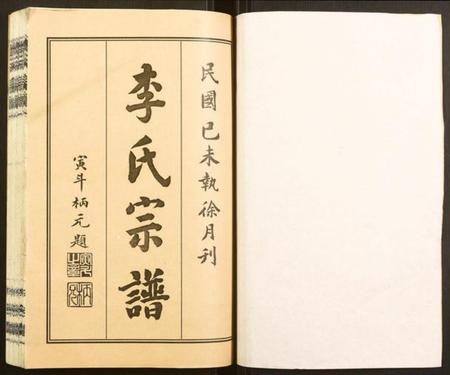 民國已未執徐月刊
李氏宗譜
寅斗柄元題